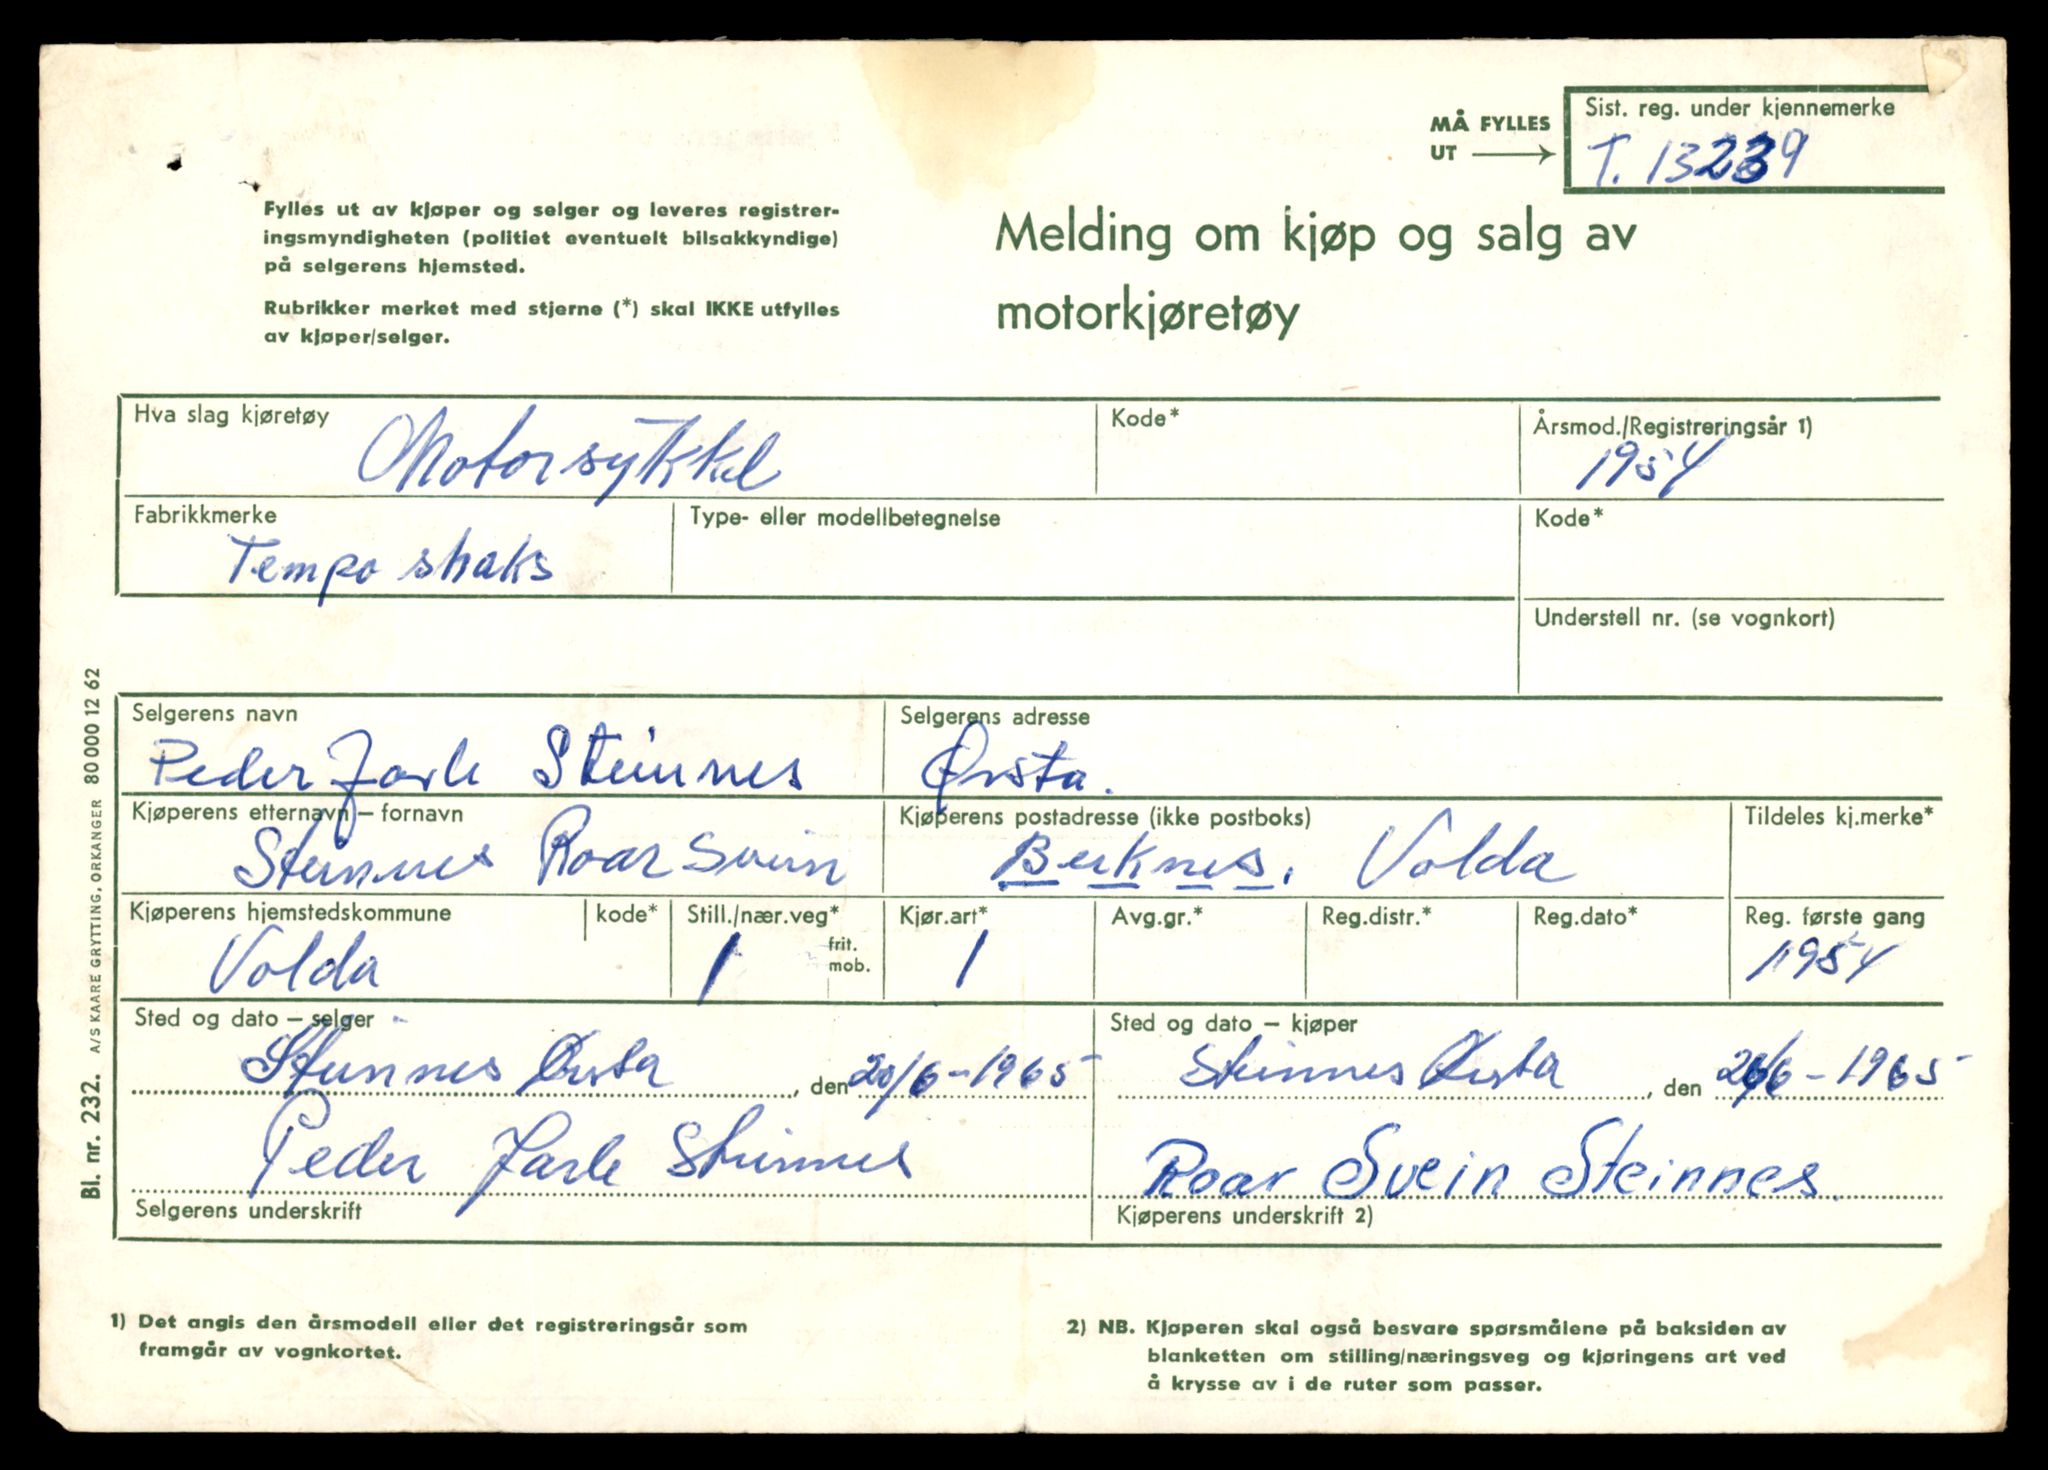 MÅ FYLLES
UT
Sist. reg. under kjennemerke
T. 13239
Fylles ut av kjøper og selger og leveres registrer-
ingsmyndigheten (politiet eventuelt bilsakkyndige)
på selgerens hjemsted.
Rubrikker merket med stjerne (*) skal IKKE utfylles
av kjøper/selger.
Melding om kjøp og salg av
motorkjøretøy
Hva slag kjøretøy
Motorsykkel
Kode*
Årsmod./Registreringsår 1)
1954
Fabrikkmerke
Tempo shaks
Type- eller modellbetegnelse
Kode*
Understell nr. (se vognkort)
Selgerens navn
Peder Jarle Steinnes
Selgerens adresse
Ørsta.
Kjøperens etternavn – fornavn
Steinnes Roar Svein
Kjøperens postadresse (ikke postboks)
Berknes, Volda
Tildeles kj.merke*
Kjøperens hjemstedskommune
Volda
kode*
Still./nær.veg*
1
frit.
mob.
Kjør.art*
1
Avg.gr.*
Reg.distr.*
Reg.dato*
Reg. første gang
1954
Sted og dato – selger
Steinnes Ørsta, den 20/6-1965
Peder Jarle Steinnes
Selgerens underskrift
Sted og dato – kjøper
Steinnes Ørsta, den 26/6-1965
Roar Svein Steinnes.
Kjøperens underskrift 2)
1) Det angis den årsmodell eller det registreringsår som
framgår av vognkortet.
2) NB. Kjøperen skal også besvare spørsmålene på baksiden av
blanketten om stilling/næringsveg og kjøringens art ved
å krysse av i de ruter som passer.
Bl. nr. 232. A/S KAARE GRYTTING, ORKANGER 80 000 12 62